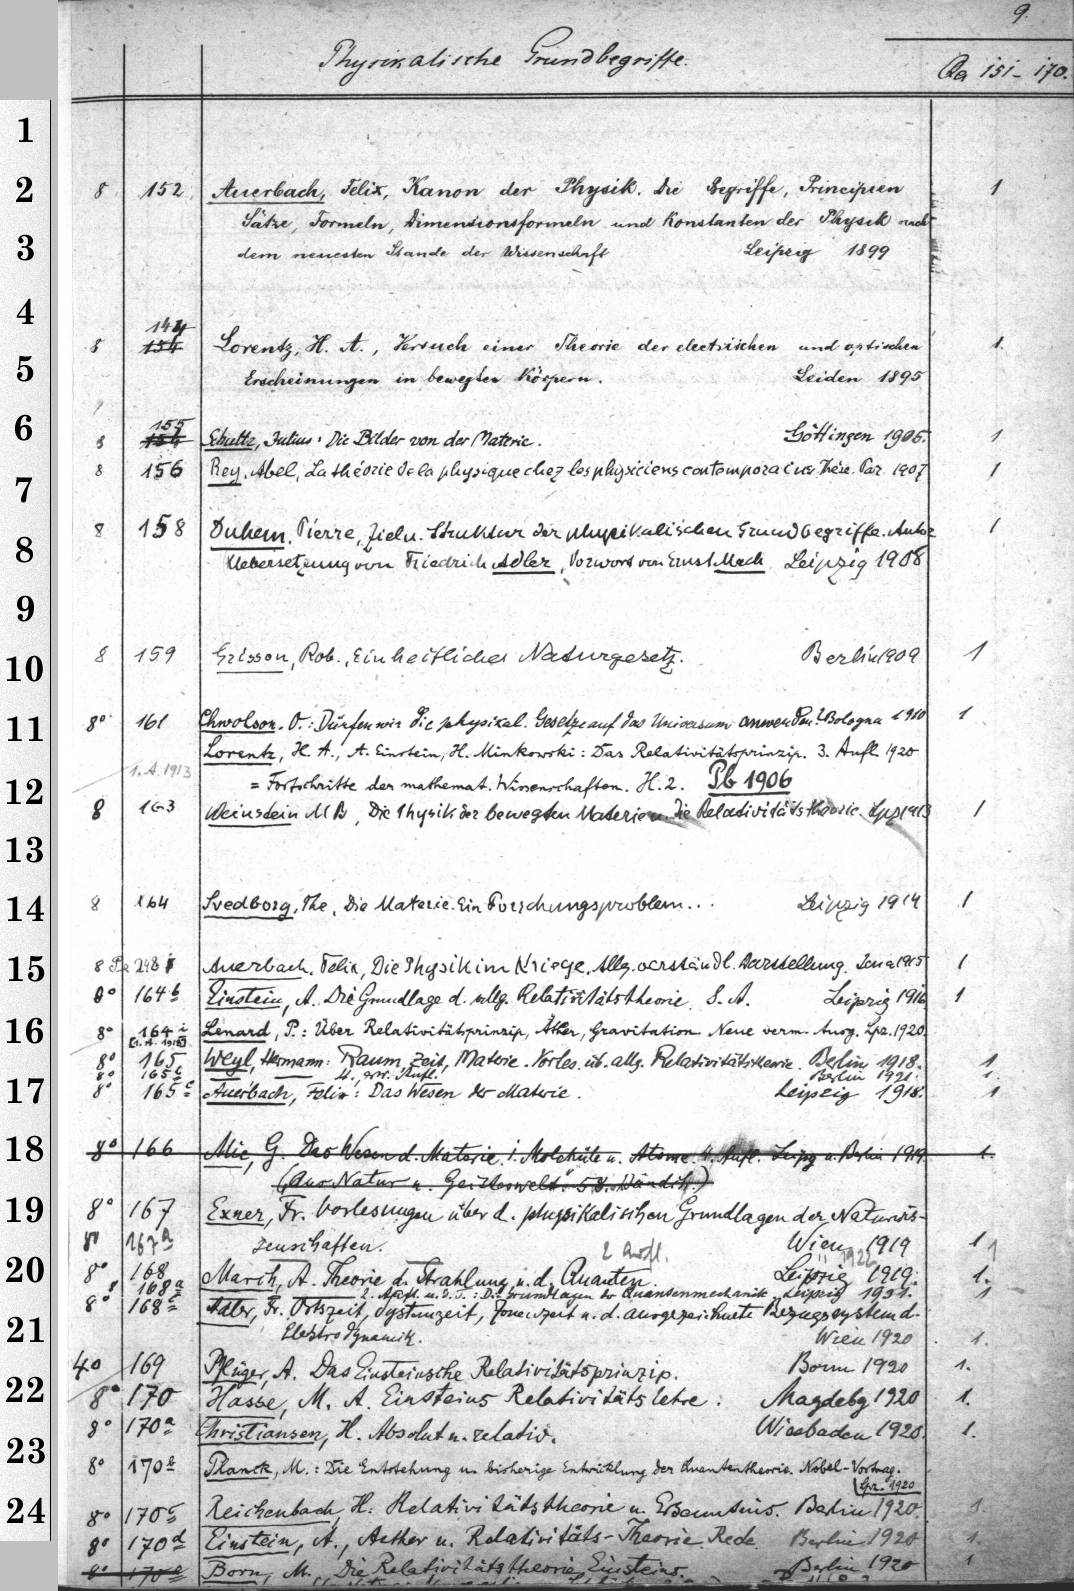 9.
Physikalische Grundbegriffe.
Qa 151-170.
1
2
8 152 Auerbach, Felix, Kanon der Physik. Die Begriffe, Principien 1
Sätze, Formeln, Dimensionsformeln und Konstanten der Physik nach
3
dem neuesten Stande der Wissenschaft Leipzig 1899
4
144
8 154 Lorentz, H. A., Versuch einer Theorie der electrischen und optischen 1.
5
Erscheinungen in bewegten Körpern. Leiden 1895
6
155
8 154 Schultz, Julius: Die Bilder von der Materie. Göttingen 1905. 1
8 156 Rey, Abel, La théorie de la physique chez les physiciens contemporains Thèse. Par. 1907 1
7
8 158 Duhem, Pierre, Ziel u. Struktur der physikalischen Grundbegriffe. Autor 1
8
Uebersetzung von Friedrich Adler, Vorwort von Ernst Mach Leipzig 1908
9
10
8 159 Grisson, Rob., Einheitliches Naturgesetz. Berlin 1909 1
11
8° 161 Chwolson, O.: Dürfen wir die physikal. Gesetze auf das Universum anwenden? Bologna 1910 1
Lorentz, H. A., A. Einstein, H. Minkowski: Das Relativitätsprinzip. 3. Aufl. 1920
1. A. 1913
12
= Fortschritte der mathemat. Wissenschaften. H. 2. Pb 1906
8 163 Weinstein M B, Die Physik der bewegten Materie u. die Relativitätstheorie. Lpz 1913 1
13
14
8 164 Svedborg, The, Die Materie. Ein Forschungsproblem... Leipzig 1914 1
15
8 248 Auerbach, Felix, Die Physik im Kriege. Allg. verständl. Darstellung. Jena 1915 1
8° 164b Einstein, A. Die Grundlage d. allg. Relativitätstheorie S. A. Leipzig 1916 1
16
8° 164 Lenard, P.: Über Relativitätsprinzip, Äther, Gravitation Neue verm. Ausg. Lpz. 1920.
8° 165 Weyl, Hermann: Raum, Zeit, Materie. Vorles. üb. allg. Relativitätstheorie. Berlin 1918. 1
8° 165 4. erw. Aufl. Berlin 1921. 1.
17
8° 165c Auerbach, Felix: Das Wesen der Materie. Leipzig 1918. 1
18
8° 166 Mie, G. Das Wesen d. Materie. I. Moleküle u. Atome. 4. Aufl. Leipz. u. Berlin 1919. 1.
(Aus Natur u. Geisteswelt. 58. Bändch.)
19
8° 167 Exner, Fr. Vorlesungen über d. physikalischen Grundlagen der Naturwis-
8° 167a senschaften. Wien 1919 1 1
2 Aufl. 1922
20
8° 168 March, A. Theorie d. Strahlung u. d. Quanten. Leipzig 1919. 1.
8 168a 2. Aufl. u. d. T.: Die Grundlagen der Quantenmechanik. Leipzig 1931. 1
8° 168c Adler, Fr. Ortszeit, Systemzeit, Zonenzeit u. d. ausgezeichnete Bezugssystem d.
21
Elektrodynamik. Wien 1920 1.
4° 169 Pflüger, A. Das Einsteinsche Relativitätsprinzip. Bonn 1920 1.
22
8° 170 Hasse, M. A. Einsteins Relativitätslehre: Magdebg 1920 1.
8° 170a Christiansen, H. Absolut u. relativ. Wiesbaden 1920. 1.
23
8° 170b Planck, M.: Die Entstehung u. bisherige Entwicklung der Quantentheorie. Nobel-Vortrag.
Lpz. 1920
24
8° 170c Reichenbach, H. Relativitätstheorie u. Erkenntnis. Berlin 1920. 1.
8° 170d Einstein, A., Aether u. Relativitäts-Theorie. Rede Berlin 1920 1.
8° 170e Born, M., Die Relativitätstheorie Einsteins. Berlin 1920 1